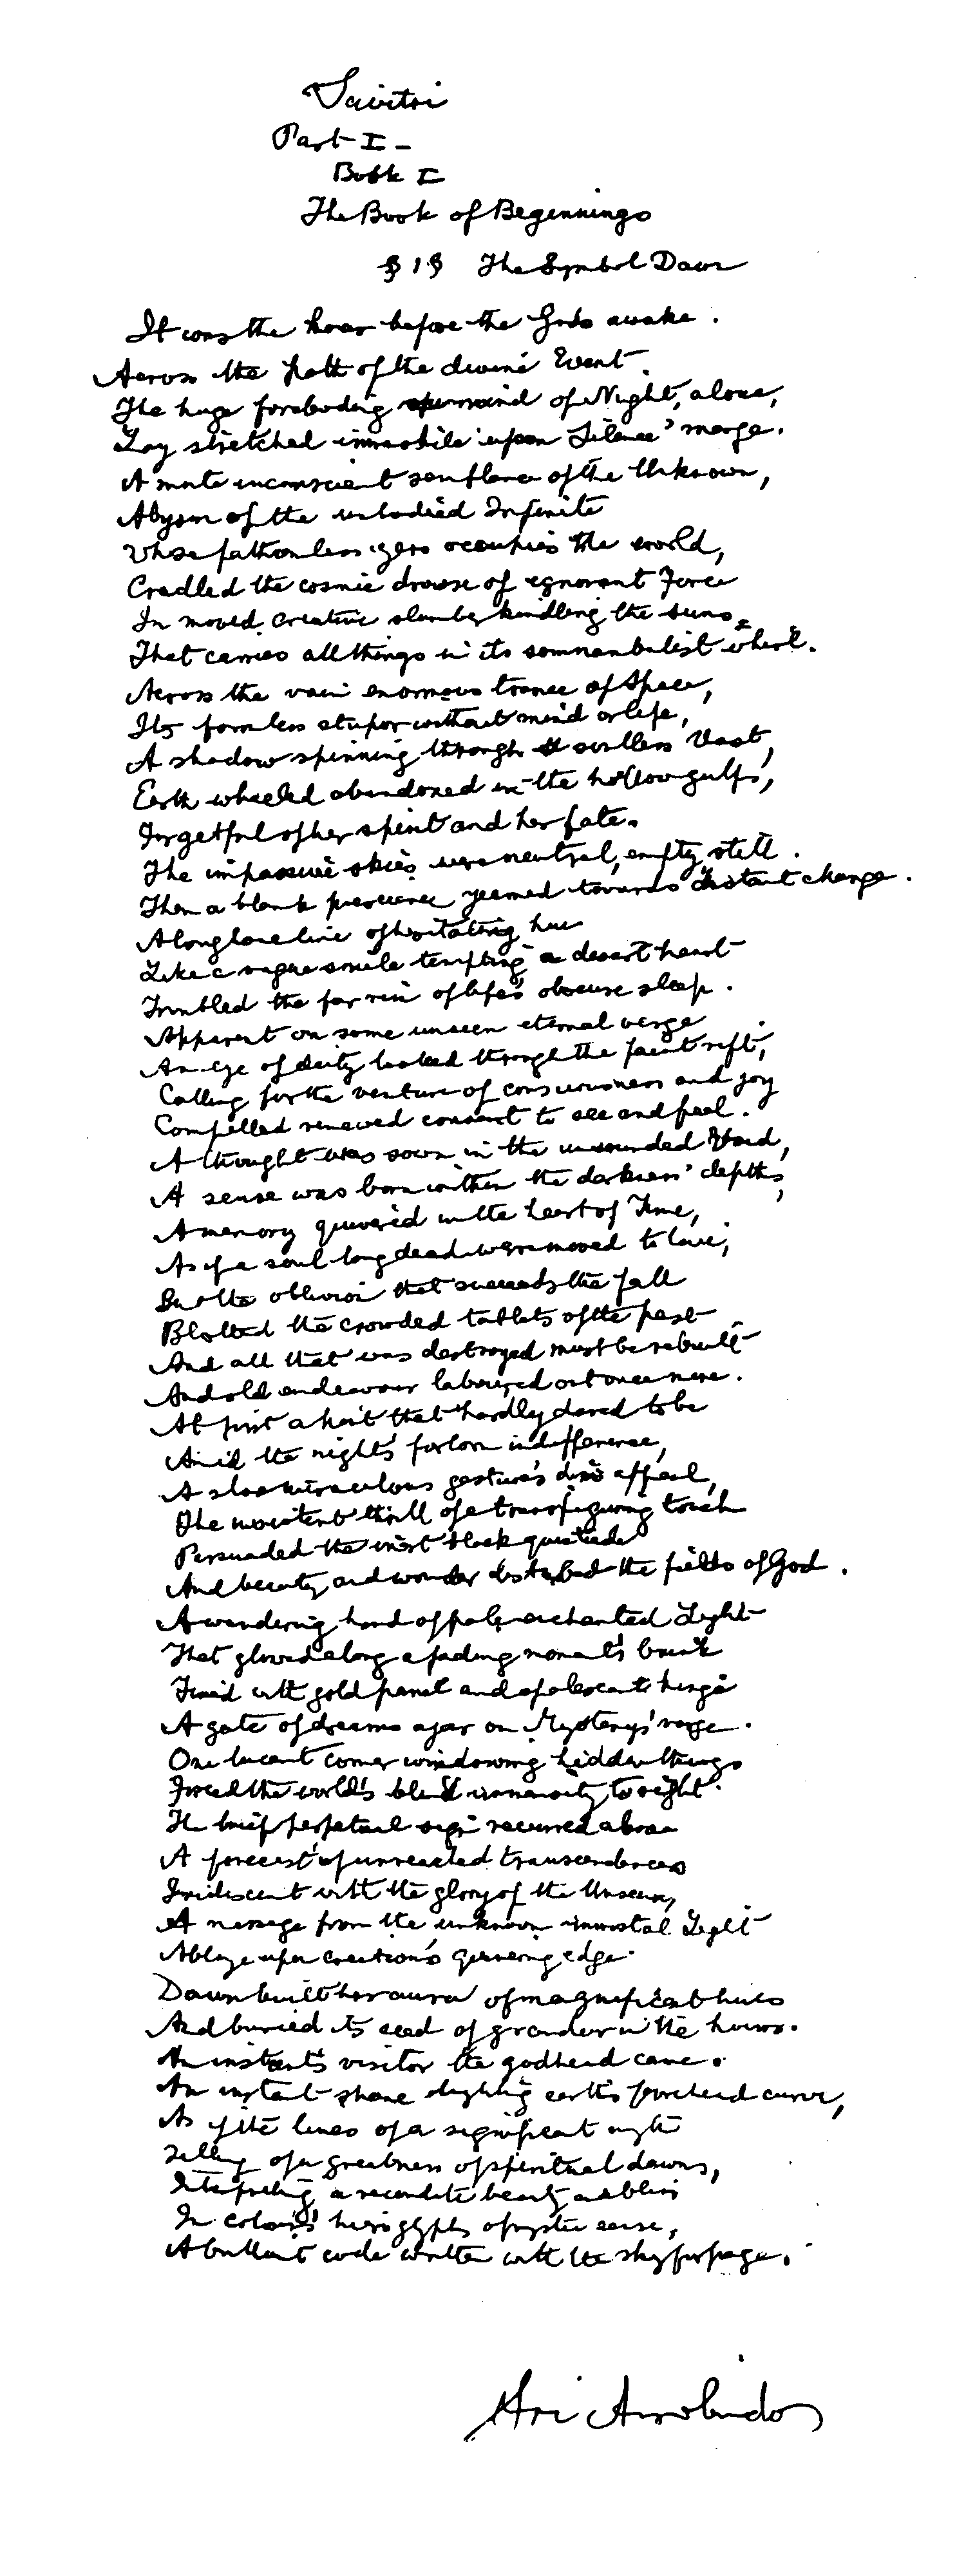 Savitri
Part I -
Book I
The Book of Beginnings
§ 1 § The Symbol Dawn
It was the hour before the Gods awake.
Across the path of the divine Event
The huge foreboding mind of Night, alone,
Lay stretched immobile upon Silence' marge.
A mute inconscient semblance of the Unknown,
Abysm of the unbodied Infinite
Whose fathomless zero occupies the world,
Cradled the cosmic drowse of ignorant Force
In moved creative slumber kindling the suns
That carries all things in its somnambulist whirl.
Across the vain enormous trance of Space,
Its formless stupor without mind or life,
A shadow spinning through a soulless Vast,
Earth wheeled abandoned in the hollow gulfs,
Forgetful of her spirit and her fate.
The impassive skies were neutral, empty, still.
Then a blank prescience yearned towards distant change.
A long lone line of hesitating hue
Like a vague smile tempting a desert heart
Troubled the far rim of life's obscure sleep.
Apparent on some unseen eternal verge
An eye of deity looked through the faint rift,
Calling for the venture of consciousness and joy
Compelled renewed consent to see and feel.
A thought was sown in the unsounded Void,
A sense was born within the darkness' depths,
A memory quivered in the heart of Time,
As if a soul long dead were moved to live;
But the oblivion that succeeds the fall
Blotted the crowded tablets of the past
And all that was destroyed must be rebuilt
And old endeavour laboured out once more.
At first a hint that hardly dared to be
Amid the night's forlorn indifference,
A slow miraculous gesture's dim appeal,
The insistent thrill of a transfiguring touch
Persuaded the inert black quietude
And beauty and wonder disturbed the fields of God.
A wandering hand of pale enchanted Light
That glowed along a fading moment's brink
Fixed with gold panel and opalescent hinge
A gate of dreams ajar on Mystery's verge.
One lucent corner windowing hidden things
Forced the world's blind immensity to sight.
The brief perpetual sign recurred above
A forecast of unreached transcendences
Iridescent with the glory of the Unseen,
A message from the unknown immortal Light
Ablaze upon creation's quivering edge
Dawn built her aura of magnificent hues
And buried its seed of grandeur in the hours.
An instant's visitor the godhead came.
An instant shone lighting earth's forehead curve,
As if the lines of a significant myth
Telling of a greatness of spiritual dawns,
Interpreting a recondite beauty and bliss
In colour's hieroglyphs of mystic sense,
A brilliant code written with the sky for page.
Sri Aurobindo